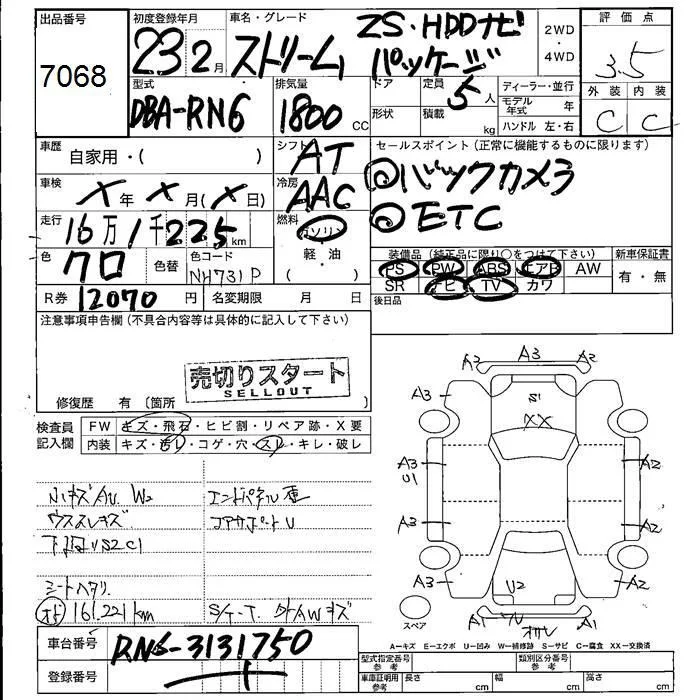 出品番号
7068
初度登録年月
23 2月
車名・グレード
ストリーム ZS・HDDナビ
パッケージ
2WD
・
4WD
評価点
3.5
外装 内装
C C
型式
DBA-RN6
排気量
1800 CC
ドア
形状
定員
5人
積載
kg
ディーラー・並行
モデル年式 年
ハンドル 左・右
車歴
自家用・( )
シフト
AT
セールスポイント(正常に機能するものに限ります)
◎バックカメラ
◎ETC
車検
X年X月(X日)
冷房
AAC
走行
16万1千225km
燃料
ガソリン
軽・油
・( )
色
クロ
色替
色コード
NH731P
装備品(純正品に限り○をつけて下さい)
PS PW ABS エアB AW
SR ナビ TV カワ
新車保証書
有・無
後日品
R券 12070円
名変期限 月 日
注意事項申告欄(不具合内容等は具体的に記入して下さい)
売切りスタート
SELLOUT
修復歴 有 〔箇所 〕
検査員
記入欄
FW キズ・飛石・ヒビ割・リペア跡・X要
内装 キズ・汚レ・コゲ・穴・スレ・キレ・破レ
小キズAU W2
ウススレキズ
下廻りS2C1
シートヘタリ
161.221km
エンドパネル歪
コアサポートU
S/T-T. タイAWキズ
A3 A3 A2
A3
S1
XX
A3
U1
A2
A3
A2
A3
A2
U2
A1
A1
スペア
A=キズ E=エクボ U=凹み W=補修跡 S=サビ C=腐食 XX=交換済
車台番号
RN6-3131750
登録番号
型式指定番号
参考
類別区分番号
参考
車庫証明用
参考
長さ cm
幅 cm
高さ cm